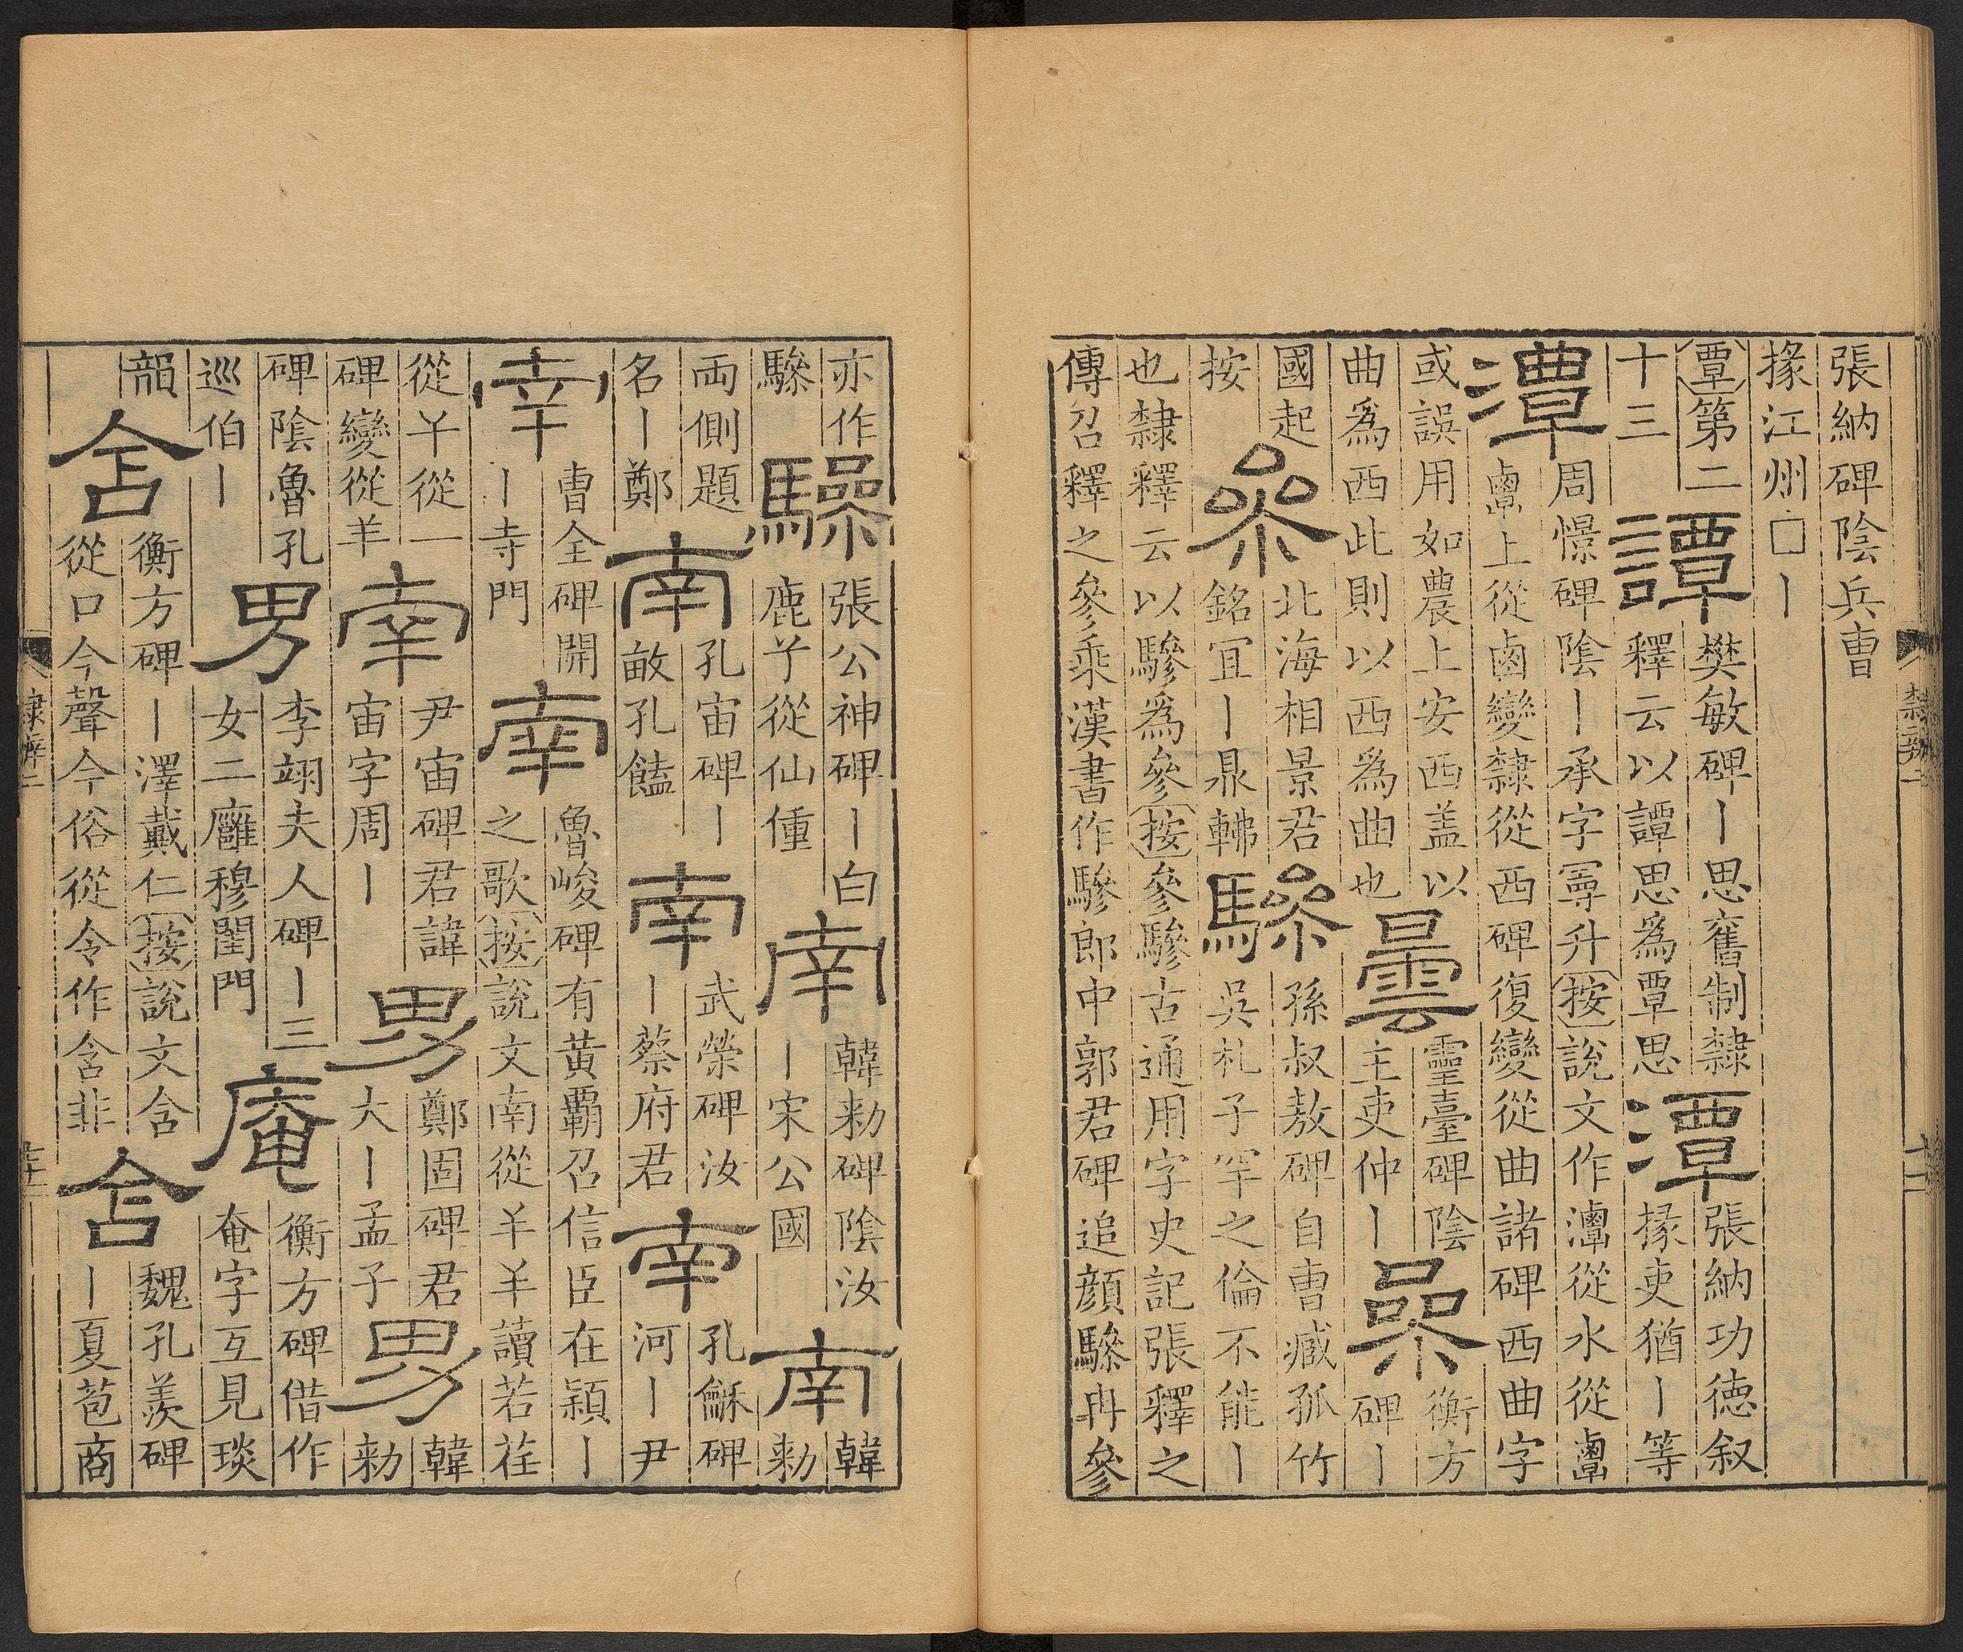 張納碑陰兵曹
掾江州□丨
覃第二
十三
譚
樊敏碑丨思舊制隸
釋云以譚思爲覃思
潭
張納功德叙
掾吏猶丨等
潭
周憬碑陰丨承字㝷升按說文作潭從水從𪉷
𪉷上從鹵變隸從西碑復變從曲諸碑西曲字
或誤用如農上安西盖以
曲爲西此則以西爲曲也
曇
靈臺碑陰
主吏仲丨
參
衡方
碑丨
國起
按
參
北海相景君
銘宜丨鼎
驂
孫叔敖碑自曹臧孤竹
吳札子罕之倫不能丨
也隸釋云以驂爲參按參驂古通用字史記張釋之
傳召釋之參乘漢書作驂郎中郭君碑追顔驂冉參
亦作
驂
驂
張公神碑丨白
鹿兮從仙僮
南
韓勑碑陰汝
丨宋公國
南
韓
勑
両側題
名丨鄭
南
孔宙碑丨
敏孔饁
南
武榮碑汝
丨蔡府君
南
孔龢碑
河丨尹
南
曹全碑開
丨寺門
南
魯峻碑有黃霸召信臣在潁丨
之歌按說文南從羊羊讀若荏
從𢆉從一
碑變從羊
南
尹宙碑君諱
宙字周丨
男
鄭固碑君
大丨孟子
男
韓
勑
碑陰魯孔
巡伯丨
男
李翊夫人碑丨三
女二離穆閨門
庵
衡方碑借作
奄字互見琰
韻
含
衡方碑丨澤戴仁按說文含
從口今聲今俗從令作含非
含
魏孔羨碑
丨夏苞商
隸辨二
十二